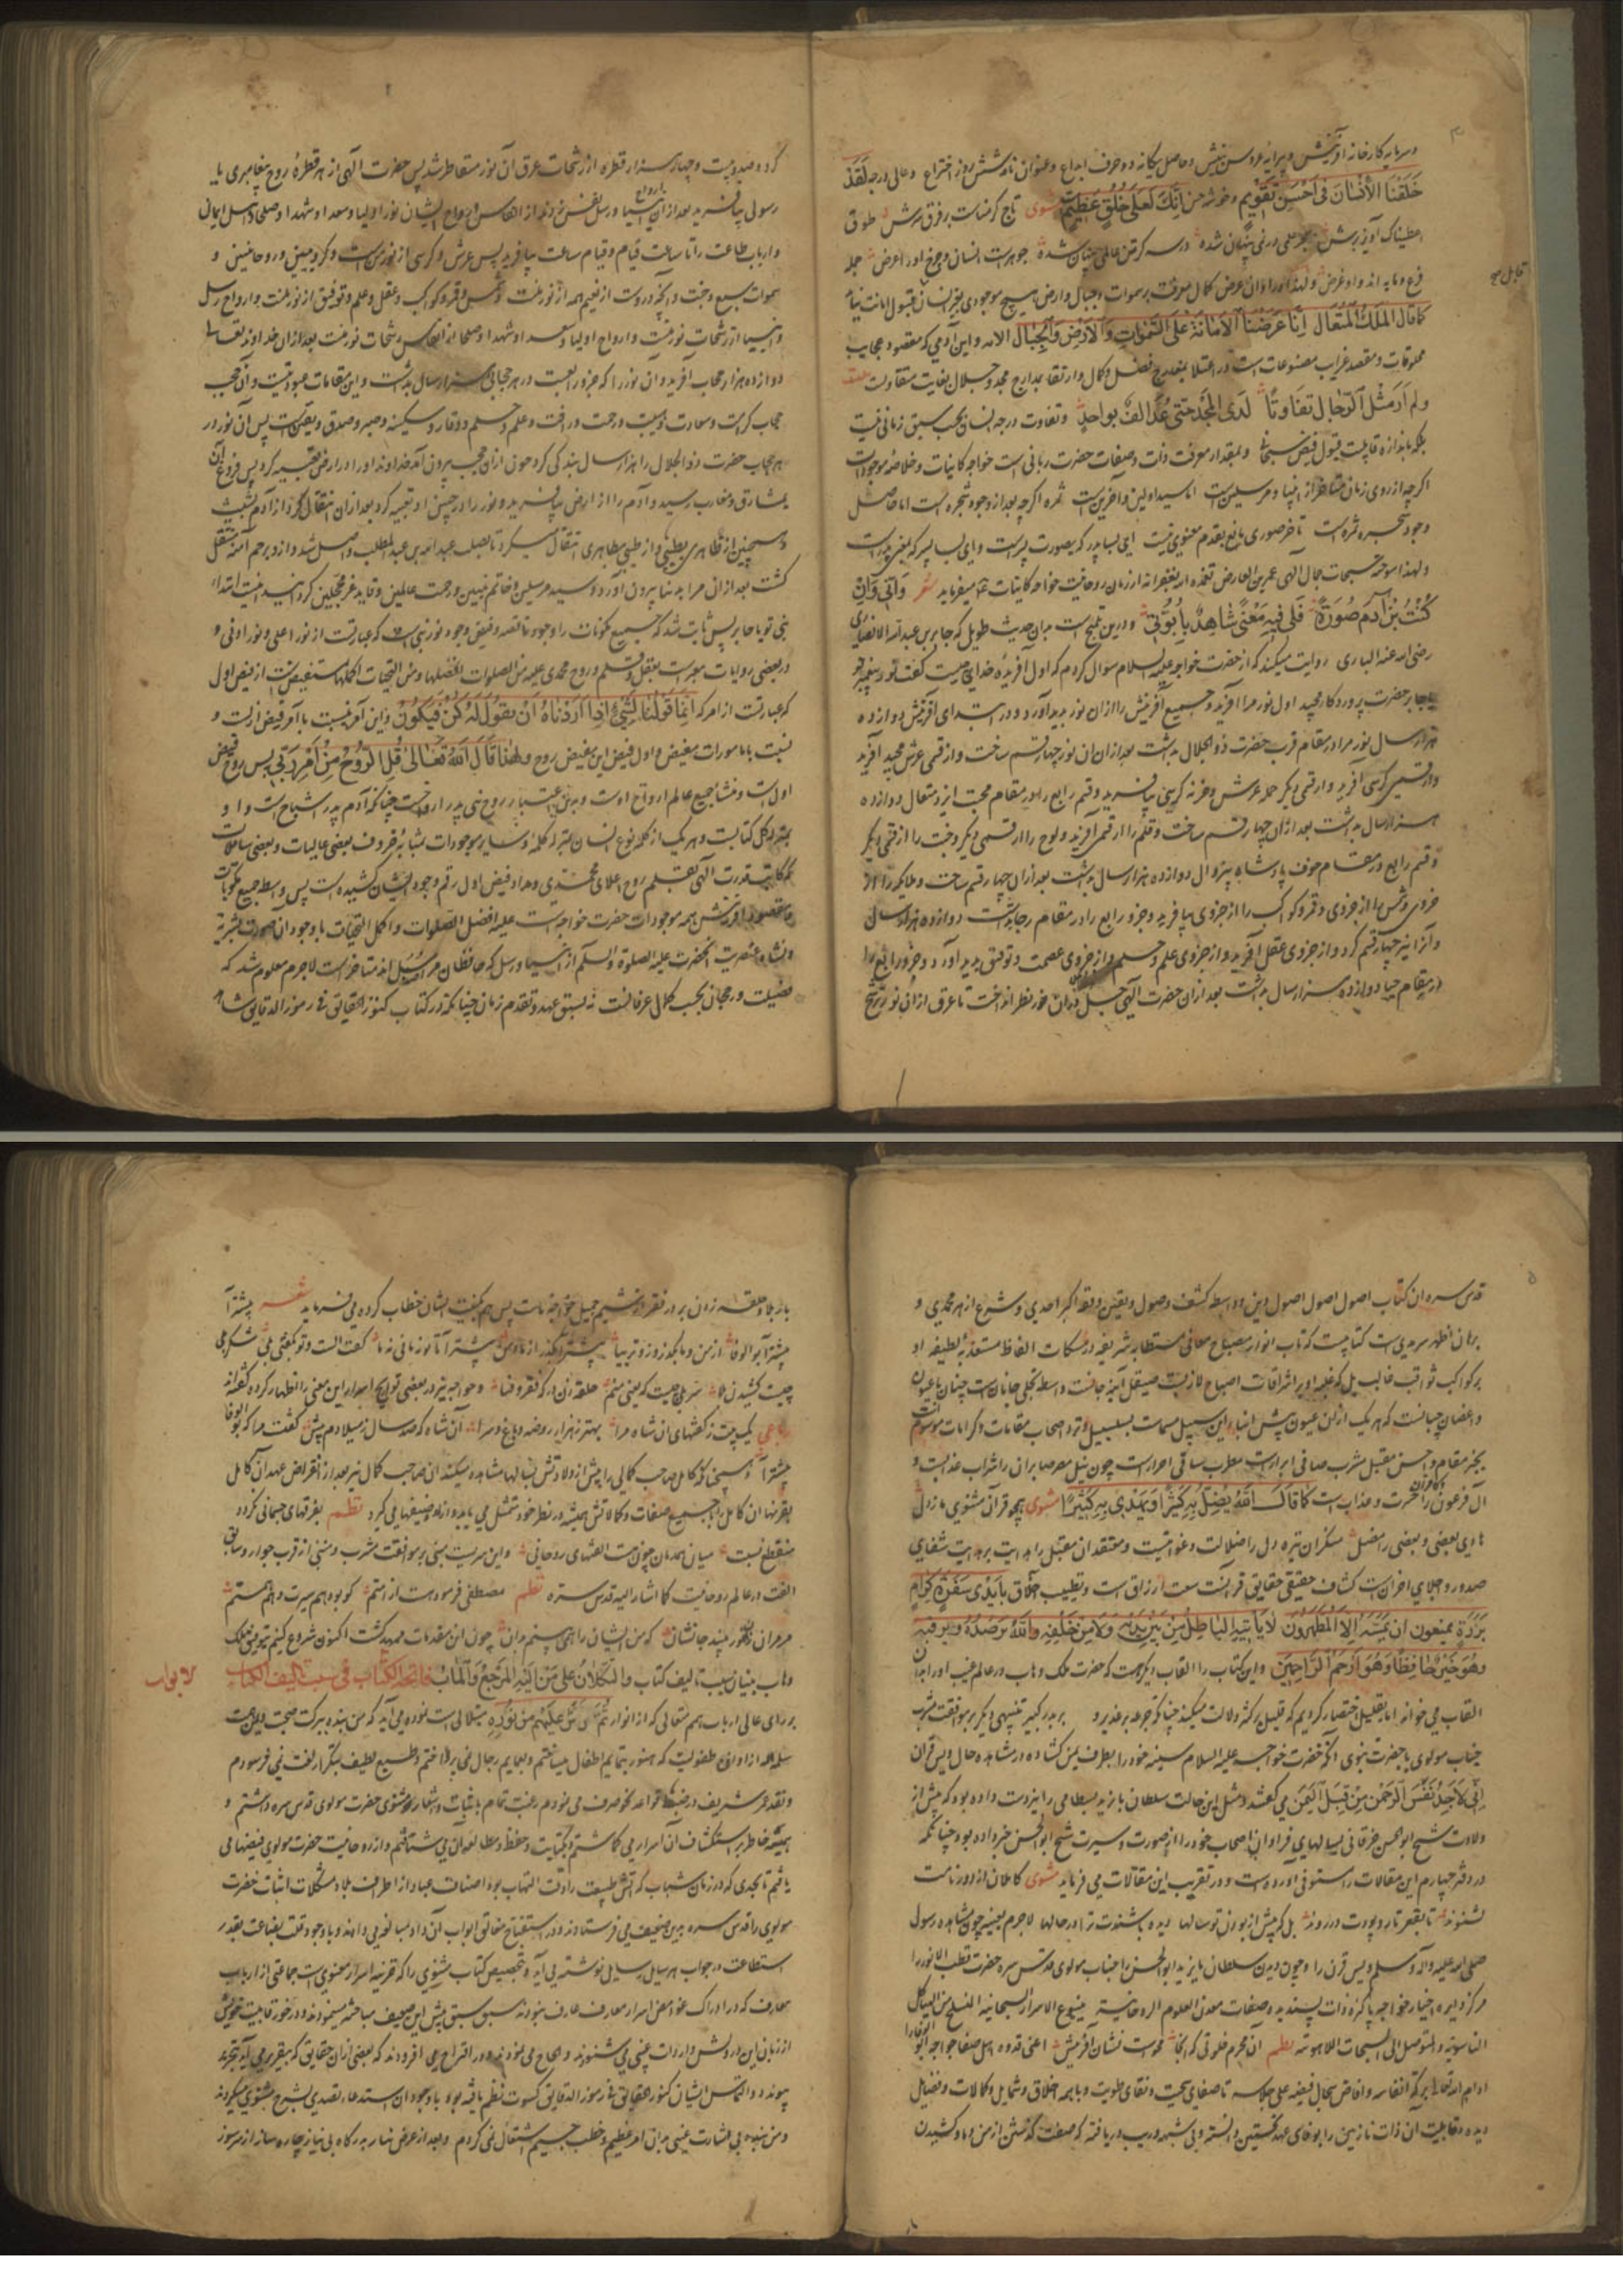 و سرمایه کارخانه آفرینش و پیرایه عروس بینش و حاصل یگانه دو حرف ابداع و عنوان نامه شش روز اختراع و عالی درجه لَقَدْ
خَلَقْنَا الْاِنْسَانَ فِی اَحْسَنِ تَقْوِیمٍ اِنَّكَ لَعَلی خُلُقٍ عَظِیمٍ مثنوی تاج کرمناست بر فرق سرش طوق
اعطیناک آویز برش بحر علمی در نمی پنهان شده در سه گز تن عالمی پنهان شده جوهرست انسان و چرخ او را عرض جمله
فرع و مایه اند و او غرض و لهذا در اوان عرض کمال معرفت بر سموات و جبال و ارض هیچ موجودی بغیر انسان قبول امانت
کما قال المَلِكُ المُتَعَال اِنَّا عَرَضْنَا الْاَمَانَةَ عَلَی السَّمٰوَاتِ وَالْاَرْضِ وَالْجِبَالِ الآیه و این آدمی که مقصود عجایب
مخلوقات و مقصد غرایب مصنوعات است در اعتلا بمعارج فضل و کمال و ارتقا بمدارج مجد و جلال بغایت متفاوتست
ولم اَرَ مثلَ الرِّجالِ تفاوتًا لَدَی المَجْدِ حتی عُدَّ الفٌ بواحدٍ و تفاوت درجه انسان بحسب سبق زمانی نیست
بلکه باندازه قابلیت قبول فیض سبحانی و بمقدار معرفت ذات و صفات حضرت ربانی است خواجه کاینات و خلاصه موجودات
اگرچه از روی زمان متأخر از انبیا و مرسلین است اما سید اولین و آخرین است ثمره اگرچه بعد از وجود شجره است اما حاصل
وجود شجره ثمره است تأخر صوری مانع تقدم معنوی نیست ای بسا پدر که بصورت پسر است و ای بسا پسر که بمعنی پدر است
و لهذا سوخته سبحات جمال الهی عمر بن الفارض تغمده الله بغفرانه از زبان روحانیت خواجه کاینات میفرماید شعر وَاِنّی وَاِنْ
کُنْتُ ابْنَ آدَمَ صُورَةً فَلی فِیهِ مَعْنًی شَاهِدٌ بِاُبُوَّتی و درین تلمیح است بدان حدیث طویل که جابر بن عبد الله الانصاری
رضی الله عنه الباری روایت میکند که از حضرت خواجه علیه السلام سوال کردم که اول آفریده خدای چیست گفت نور پیغمبر تو
یا جابر حضرت پروردگار مجید اول نور مرا آفرید و جمیع آفرینش را از ان نور پدید آورد و در ابتدای آفرینش دوازده
هزار سال نور مرا در مقام قرب حضرت ذو الجلال بداشت بعد از ان آن نور چهار قسم ساخت و از قسمی عرش مجید آفرید
و از قسمی کرسی آفرید و از قسمی دیگر حمله عرش و خزنه کرسی بیافرید و قسم رابع را در مقام محبت ایزد متعال دوازده
هزار سال بداشت بعد از ان چهار قسم ساخت و قلم را از قسمی آفرید و لوح را از قسمی دیگر و جنت را از قسمی دیگر
و قسم رابع در مقام خوف پادشاه بیزوال دوازده هزار سال بداشت بعد از ان چهار قسم ساخت و ملایکه را از
جزوی و شمس را از جزوی و قمر و کواکب را از جزوی بیافرید و جزو رابع را در مقام رجا بداشت دوازده هزار سال
و آنرا نیز چهار قسم کرد و از جزوی عقل آفرید و از جزوی علم و حلم و از جزوی عصمت و توفیق پدید آورد و جزو رابع را
در مقام حیا دوازده هزار سال بداشت بعد از ان حضرت الهی جل ذکره در ان جزو نظر انداخت تا عرق از ان نور ترشح
قابل صح
کرد و صد و بیست و چهار هزار قطره از رشحات عرق آن نور متقاطر شد پس حضرت الهی از هر قطره روح پیغامبری یا
رسولی بیافرید بعد از ان ارواح انبیا و رسل نفس زدند از انفاس ارواح ایشان نور اولیا و سعدا و شهدا و صلحا و اهل ایمان
و ارباب طاعت را تا ساعت قیام و قیام ساعت بیافرید پس عرش و کرسی از نور منست و کروبیین و روحانیین و
سموات سبع و جنت و آنچه دروست از نعیم همه از نور منست و شمس و قمر و کواکب و عقل و علم و توفیق از نور منست و ارواح رسل
و انبیا از رشحات نور منست و ارواح اولیا و سعدا و شهدا و صلحا از انعکاس رشحات نور منست بعد از ان خداوند تعالی
دوازده هزار حجاب آفرید و آن نور را که جزو رابعست در هر حجابی هزار سال بداشت و این مقامات عبودیتست و آن حجب
حجاب کرامت و سعادت و هیبت و رحمت و رافت و علم و حلم و وقار و سکینه و صبر و صدق و یقین است پس آن نور در
هر حجاب حضرت ذو الجلال را هزار سال بندگی کرد چون از ان حجب بیرون آمد خداوند او را در ارض تعبیه کرد پس فروغ آن
بمشارق و مغارب رسید و آدم را از ارض بیافرید و نور را در جبین او تعبیه کرد بعد از ان انتقال کرد از آدم بشیث
و همچنین از طاهری بطیبی و از طیبی بطاهری انتقال میکرد تا بصلب عبد الله بن عبد المطلب واصل شد و از و برحم آمنه منتقل
گشت بعد از ان مرا بدنیا بیرون آورد و سید مرسلین و خاتم نبیین و رحمت عالمین و قاید غر محجلین گردانید اینست ابتداء
نبی تو یا جابر پس ثابت شد که جمیع مکونات را وجود ناقصه و فیض وجود نور نبیست که عبارتست از نور اعلی و نور ادنی و
در بعضی روایات معبرست بعقل و قلم و روح محمدی علیه من الصلوات افضلها و من التحیات اکملها مستفیض است از فیض اول
که عبارتست از امر که اِنَّمَا قَوْلُنَا لِشَیْءٍ اِذَا اَرَدْنَاهُ اَنْ نَقُولَ لَهُ کُنْ فَیَکُونُ و این آمر نیست با آمر فیض ازلست و
نسبت با مامورات مفیض و اول فیض این مفیض روح و لهذا قَالَ اللّٰهُ تَعَالیٰ قُلِ الرُّوحُ مِنْ اَمْرِ رَبِّی پس روح فیض
اولست و منشا جمیع عالم ارواح اوست و بدین اعتبار روح نبی پدر ارواحست چنانکه آدم پدر اشباح است و او
بمنزله کل کتابست و هر یک از کلمه نوع انسان بمنزله کلمه و سایر موجودات بمثابه حروف بعضی عالیات و بعضی سافلات
که کاتب قدرت الهی بقلم روح اعلای محمدی و مداد فیض اول رقم وجود ایشان کشیده است پس واسطه جمیع مکونات
و مقصود آفرینش همه موجودات حضرت خواجه است علیه افضل الصلوات و اکمل التحیات با وجود آن صورت بشریه
و نشاه عنصریت آنحضرت علیه الصلوة والسلم از انبیا و رسل که حافظان مراسم سبل اند متاخر است لاجرم معلوم شد که
فضیلت و رجحان بحسب کمال عرفانست نه بسبق عهد و تقدم زمان چنانکه در کتاب کنوز الحقایق فی رموز الدقایق
قدس سره ان کتاب اصول اصول اصول دین و واسطه کشف وصول و یقین و فقه اکبر احدی و شرع ازهر محمدی و
برهان اظهر سرمدیست کتابیست که تاب انوار مصباح معانی مستطابه شریفه در مشکات الفاظ مستعذبه لطیفه او
بر کواکب ثواقب غالب بل که غلبه او بر اشراقات اصباح لازبست صیقل آیینه جانست واسطه تجلی جانانست چنان با عیون
و اغصان چنانست که هر یک از ان عیون پیش ابناء این سبیل مسمات بسلسبیل و نزد اصحاب مقامات و کرامات موسوم
بخیر مقام و احسن مقیل مشرب صافی ابرارست مطرب ساقی احرارست چون نیل مصر صابران را شراب عذبست و
آل فرعون را حسرت و عذابست کما قالَ اللّٰهُ یُضِلُّ بِهِ کَثِیرًا وَیَهْدِی بِهِ کَثِیرًا مثنوی همچو قرآن مثنوی ما ز دل
هادی بعضی و بعضی را مضل منکران تیره دل را ضلالت و غوایتست و معتقدان مقبل را هدایت بر هدایت شفای
صدور و جلای احزانست کشاف حقیقی حقایق قرآنست سعت ارزاق است و تطییب اخلاق بِاَیْدِی سَفَرَةٍ کِرَامٍ
بَرَرَةٍ یمنعون ان یَمَسَّهُ اِلَّا الْمُطَهَّرُونَ لَا یَأْتِیهِ الْبَاطِلُ مِنْ بَیْنِ یَدَیْهِ وَلَا مِنْ خَلْفِهِ واللّٰهُ یَرصُدُهُ و یرقبه
وهُوَ خَیْرٌ حَافِظًا وَهُوَ اَرْحَمُ الرَّاحِمِینَ و این کتاب را القاب دیگر هست که حضرت ملک وهاب در عالم غیب او را بدان
القاب می خواند اما بقلیل اختصار کردیم که قلیل بر کثیر دلالت میکند چنانکه جرعه بر غدیر و بر بیدر کبیر تنبیهی دیگر بر موافقت مشرب
جناب مولوی با حضرت نبوی آنکه حضرت خواجه علیه السلام سینه خود را بطرف یمن کشاده در مشاهده حال ویس قرن
اِنّی لَاَجِدُ نَفَسَ الرَّحْمٰنِ مِنْ قِبَلِ الْیَمَنِ می گفتند و مثل این حالت سلطان بایزید بسطامی را نیز دست داده بود که پیش از
ولادت شیخ ابو الحسن خرقانی بسالهای فراوان اصحاب خود را از صورت و سیرت شیخ ابو الحسن خبر داده بود چنانکه
در دفتر چهارم این مقالات را مستوفی آورده است و در تقریب این مقالات می فرماید مثنوی کاملان از دور نامت
بشنوند تا بقعر تار و پودت در روند بلکه پیش از بودن تو سالها دیده باشندت ترا در حالها لاجرم همچو مشاهده رسول
صلی الله علیه وآله وسلم ویس قرن را و چون دیدن سلطان بایزید ابو الحسن را جناب مولوی قدس سره حضرت قطب الانور را
مرکز دایره اخیار خواجه پاکزه ذات پسندیده صفات معدن العلوم الروحانیة ینبوع الاسرار السبحانیه المنسلخ من الهیاکل
الناسوتیه والمتوصل الی السبحات اللاهوتیه نظم آن محرم خلوتی که آنجا محوست نشان آفرینش اعنی قدوه اهل صفا خواجه ابو الوفا را
ادام الله تعالی برکة انفاسه وافاض سجال فیضه علی جلاسه تا صفای سجیت و نقای طویت و با همه اخلاق و شمایل و کمالات و فضایل
دیده و قابلیت آن ذات نازنین را بوفای عهد نخستین دانسته و بی شبهه و ریب دریافته که صفت
بار بلا و حلقه زدن بر در فقر از شیم جمیل خواجه ماست پس هم بکنیت ایشان خطاب کرده می فرماید شعر پیشتر آ
پیشتر آ بو الوفا از من و ما بگذر و زوتر بیا پیشتر آ بگذر از ما و من پیشتر آ تا نو زمانی نه ما گفت الست و تو بگفتی بلی شکر بلی
چیست کشیدن بلا سر بلی چیست که یعنی منم حلقه زن درگه فقر و فنا و خواجه نیز در بعضی توالیح اسرار این معنی را اظهار کرده گفته اند
رباعی یک پوست ز کفشهای آن شاه مرا بهتر ز هزار روضه و باغ و سرا آن شاه که صد سال ز میلادم پیش گفت مرا که بو الوفا
پیشتر آ و همچنانکه کامل صاحب کمالی را پیش از ولادتش بسالها مشاهده میکند آن صاحب کمال نیز بعد از انقراض عهد آن کامل
بقرنها آن کامل را با جمیع صفات و کمالاتش همیشه در نظر خود متمثل می یابد و ازو فیضها می گیرد نظم بفرقتهای جسمانی نگردد
منقطع نسبت میان همدمان چون هست الفتهای روحانی و این سریست مبنی بر موافقت مشرب و منبی از قرب جوار و سابق
الفت در عالم روحانیت کما اشار الیه قدس سره نظم مصطفی فرمود هست از امتم کو بود هم سیرت و هم همتم
مر مرا زان نور بیند جانشان که من ایشان را همی بینم بدان چون این مقدمات ممهد گشت اکنون شروع کنیم بتوفیق ملک
وهاب ببیان سبب تالیف کتاب والتُّکْلَانُ عَلی مَنْ اِلَیْهِ المَرْجِعُ وَالْمَآبُ فاتحة الکتاب فی سبب تالیف الکتاب
لاولی الالباب
بر رای عالی ارباب همم متعالی که از انوار ثُمَّ رَشَّ عَلَیْهِمْ مِنْ نُورِهِ متلالی است نموده می آید که من بنده ببرکت صحبت
سلمه الله از اوان طفولیت که هنوز بتمایم اطفال میساختم و بعمایم رجال نمی پرداختم و طبع لطیف بتکرار لغت نمی فرسودم
و نقد عمر شریف در ضبط قواعد نحو صرف می نمودم رغبت تمام بابیات و اشعار مثنوی حضرت مولوی قدس سره داشتم و
همیشه خاطر بر استکشاف آن اسرار می گماشتم و بکتابت و حفظ و مطالعه آن می شتافتم و از روحانیت حضرت مولوی فیضها می
یافتم تا بحدی که در زمان شباب که آتش طبیعت را وقت التهاب بود اصناف عباد از اطراف بلاد مشکلات ابیات حضرت
مولوی را قدس سره بدین ضعیف می فرستادند و در استفتاح مغالق ابواب آن داد مبالغه می دادند و با وجود قلت بضاعت بقدر
استطاعت در جواب هر سایلی رسایل نوشته می آید و بتخصیص کتاب مثنوی را که خزینه اسرار معنویست جماعتی از ارباب
معارف که در ادراک غوامض اسرار معارف عارف بودند سبق سبق پیش این ضعیف مباحثه مینمودند و در خور قابلیت خویش
از زبان این درویش واردات غیبی می شنودند و الحاح می نمودند و در اقتراح می افزودند که بعضی از ان حقایق که بتقریر می آید بتحریر
پیوندد و التماس ایشان کنوز الحقایق فی رموز الدقایق کسوت نظم یافته بود با وجود آن استدعاء تصدی بشرح مثنوی میکردند
و من بنده بی اشارت غیبی بدان امر عظیم و خطب جسیم اشتغال نمی کردم و بعد از عرض نیاز بدرگاه بی نیاز چاره ساز